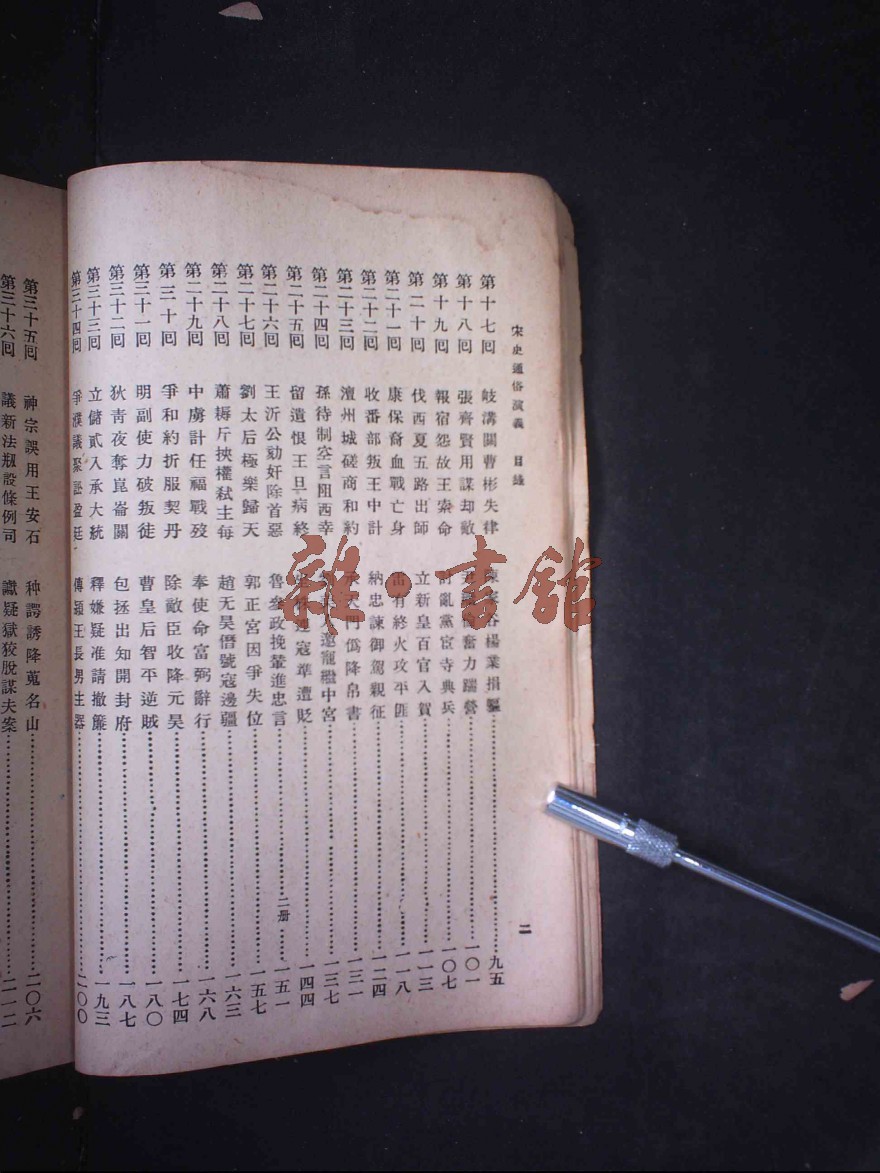 宋史通俗演義 目錄
第十七回 岐溝關曹彬失律 家谷楊業捐軀 九五
第十八回 張齊賢用謀却敵 奮力踹營 一〇一
第十九回 報宿怨故王索命 討亂黨宦寺典兵 一〇七
第二十回 伐西夏五路出師 立新皇百官入賀 一一三
第二十一回 康保裔血戰亡身 雷有終火攻平匪 一一八
第二十二回 收番部叛王中計 納忠諫御駕親征 一二四
第二十三回 澶州城磋商和約 承天門僞降帛書 一三一
第二十四回 孫待制空言阻西幸 邀寵繼中宮 一三七
第二十五回 留遺恨王旦病終 寇準遭貶 一四四
第二十六回 王沂公劾奸除首惡 魯參政挽輦進忠言 二册 一五一
第二十七回 劉太后極樂歸天 郭正宮因爭失位 一五七
第二十八回 蕭耨斤挾權弒主母 趙元昊僭號寇邊疆 一六三
第二十九回 中虜計任福戰歿 奉使命富弼辭行 一六八
第三十回 爭和約折服契丹 除敵臣收降元昊 一七四
第三十一回 明副使力破叛徒 曹皇后智平逆賊 一八〇
第三十二回 狄青夜奪崑崙關 包拯出知開封府 一八七
第三十三回 立儲貳入承大統 釋嫌疑准請撤簾 一九三
第三十四回 爭濮議聚訟盈廷 傳潁王長男主器 二〇〇
二
第三十五回 神宗誤用王安石 种諤誘降嵬名山 二〇六
第三十六回 議新法創設條例司 讞疑獄狡脫謀夫案 二一二
雜·書館